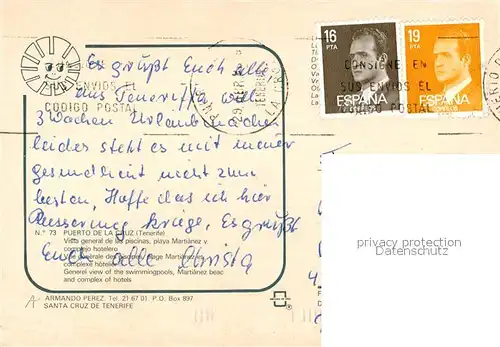 Es grüßt Euch alle,
aus Teneriffa will
3 Wochen Urlaub machen
leider steht es mit meiner
gesundheit nicht zum
besten, Hoffe das ich hier
Besserung kriege, Es grüßt
Euch alle Christa
ENVIOS EL
CODIGO POSTAL
CONSIGNE EN
SUS ENVIOS EL
CODIGO POSTAL
16 PTA
ESPAÑA
19 PTA
ESPAÑA
N.º 73 PUERTO DE LA CRUZ (Tenerife)
Vista general de las piscinas, playa Martiánez y
complejo hotelero
complexe hôtelier
General view of the swimmingpools, Martiánez beac
and complex of hotels
ARMANDO PEREZ. Tel. 21 67 01 P.O. Box 897
SANTA CRUZ DE TENERIFE
privacy protection